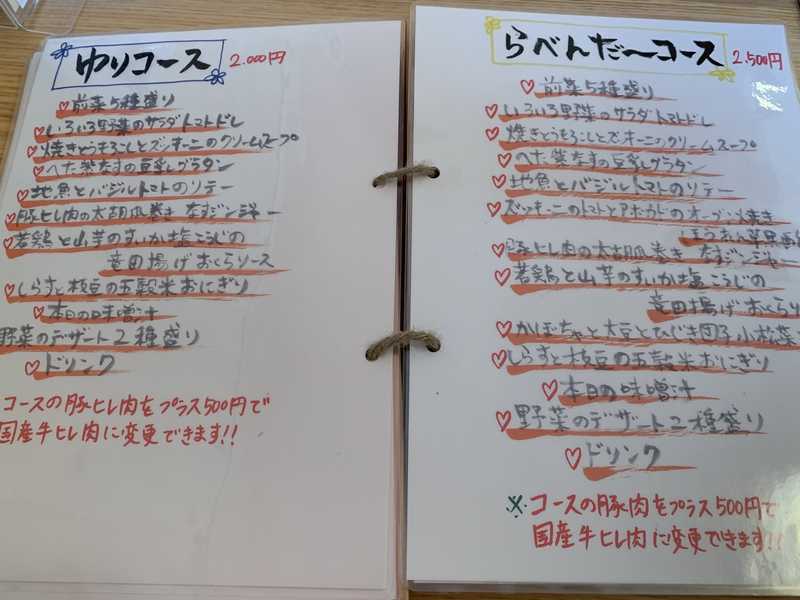 ゆりコース 2.000円
前菜5種盛り
いろいろ野菜のサラダトマトドレ
焼きとうもろこしとズッキーニのクリームスープ
へた紫なすの豆乳グラタン
地魚とバジルトマトのソテー
豚ヒレ肉の太胡瓜巻き なすジンジャー
若鶏と山芋のすいか塩こうじの
竜田揚げ おくらソース
しらすと枝豆の五穀米おにぎり
本日の味噌汁
野菜のデザート2種盛り
ドリンク
コースの豚ヒレ肉をプラス500円で
国産牛ヒレ肉に変更できます!!
らべんだーコース 2.500円
前菜5種盛り
いろいろ野菜のサラダトマトドレ
焼きとうもろこしとズッキーニのクリームスープ
へた紫なすの豆乳グラタン
地魚とバジルトマトのソテー
ズッキーニのトマトとアボカドのオーブン焼き
豚ヒレ肉の太胡瓜巻き なすジンジャー
若鶏と山芋のすいか塩こうじの
竜田揚げ おくらソ
かぼちゃと大豆とひじき団子 小松菜
しらすと枝豆の五穀米おにぎり
本日の味噌汁
野菜のデザート2種盛り
ドリンク
※コースの豚肉をプラス500円で
国産牛ヒレ肉に変更できます!!